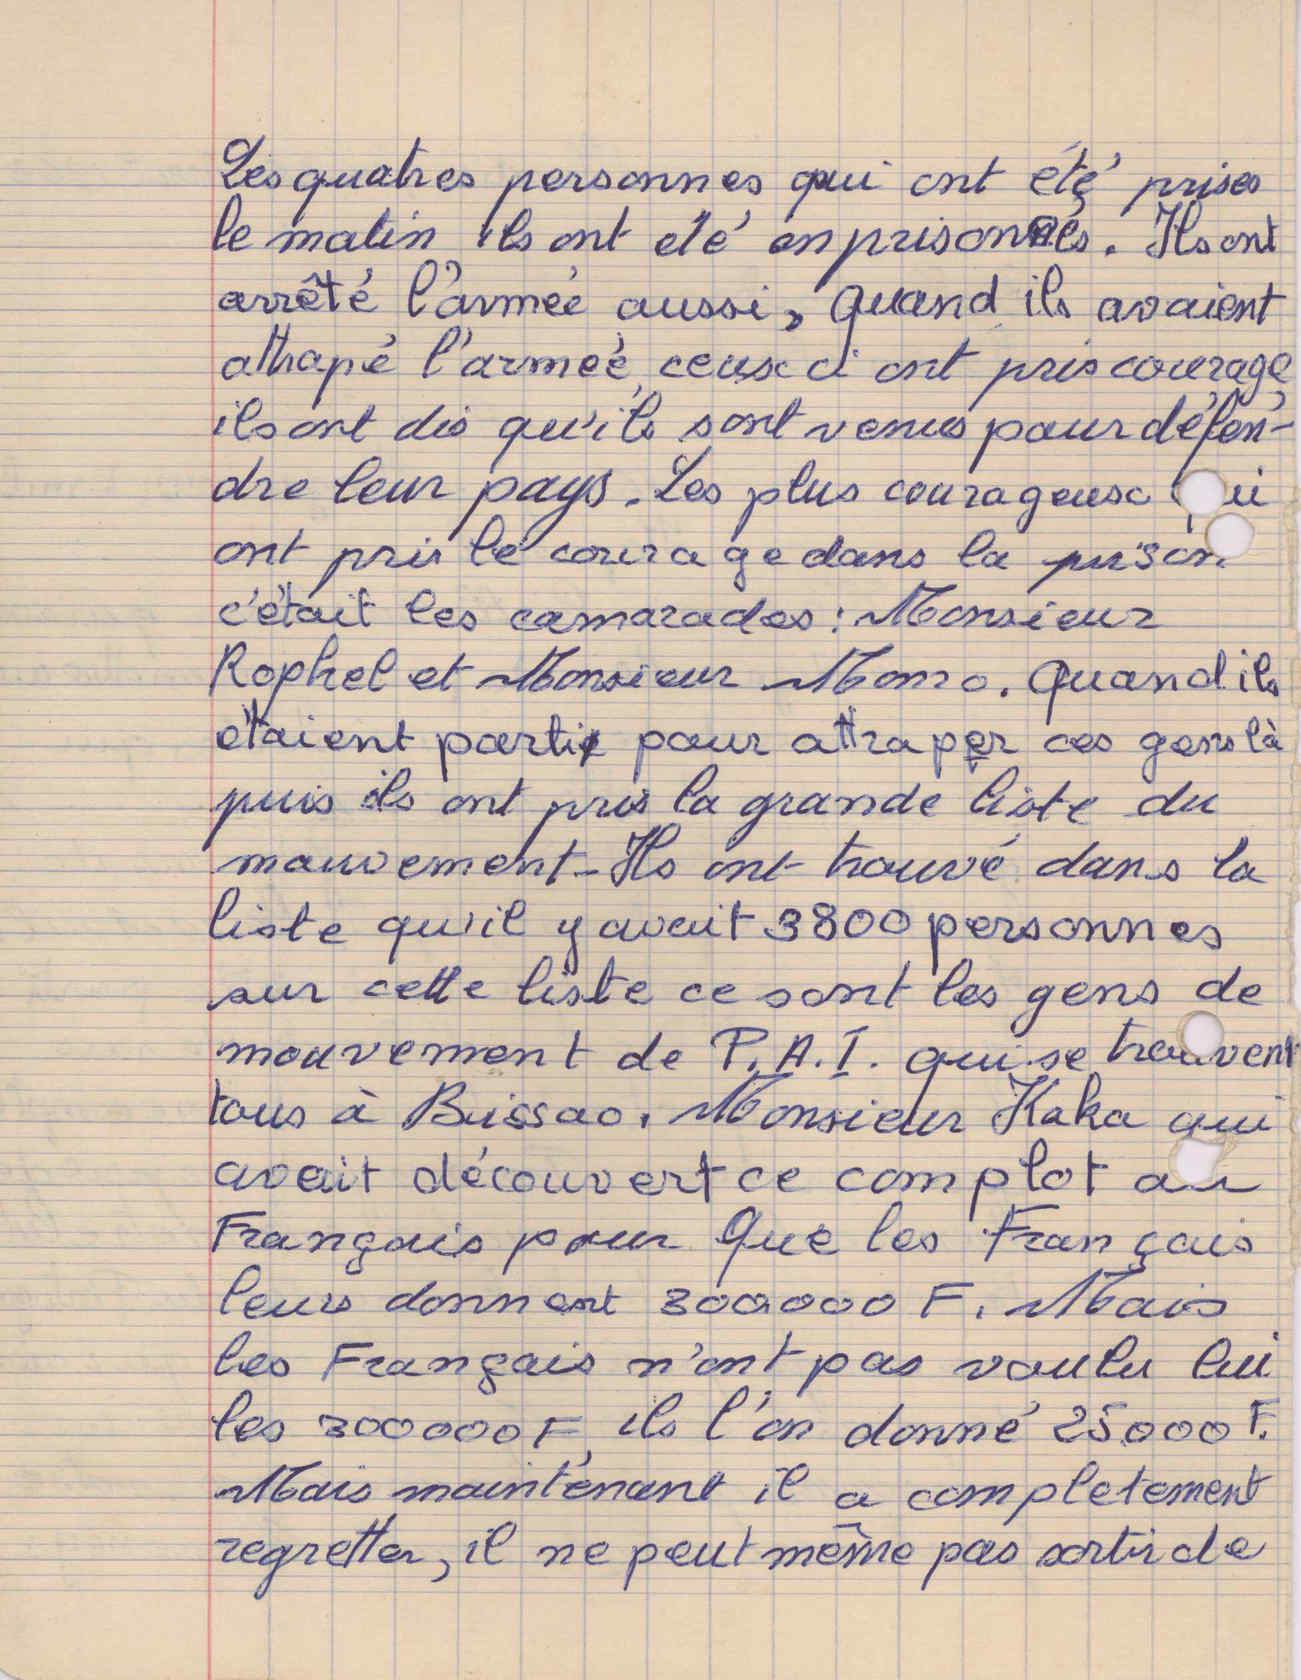 Les quatres personnes qui ont été prises
le matin ils ont eté enprisonnés. Ils ont
arrêté l'armée aussi, quand ils avaient
attrapé l'armée, ceux ci ont pris courage
ils ont dis qu'ils sont venus pour défen-
dre leur pays. Les plus courageux qui
ont pris le courage dans la prison
c'était les camarades : Monsieur
Rophel et Monsieur Momo. Quand ils
etaient partie pour attraper ces gens là
puis ils ont pris la grande liste du
mouvement. Ils ont trouvé dans la
liste qu'il y avait 3800 personnes
sur cette liste ce sont les gens de
mouvement de P.A.I. qui se trouvent
tous à Bissao. Monsieur Kaka qui
avait découvert ce complot au
Français pour que les Français
leurs donnent 300000 F. Mais
les Français n'ont pas voulu lui
les 300000 F, ils l'on donné 25000 F.
Mais maintenant il a completement
regretter, il ne peut même pas sortir de